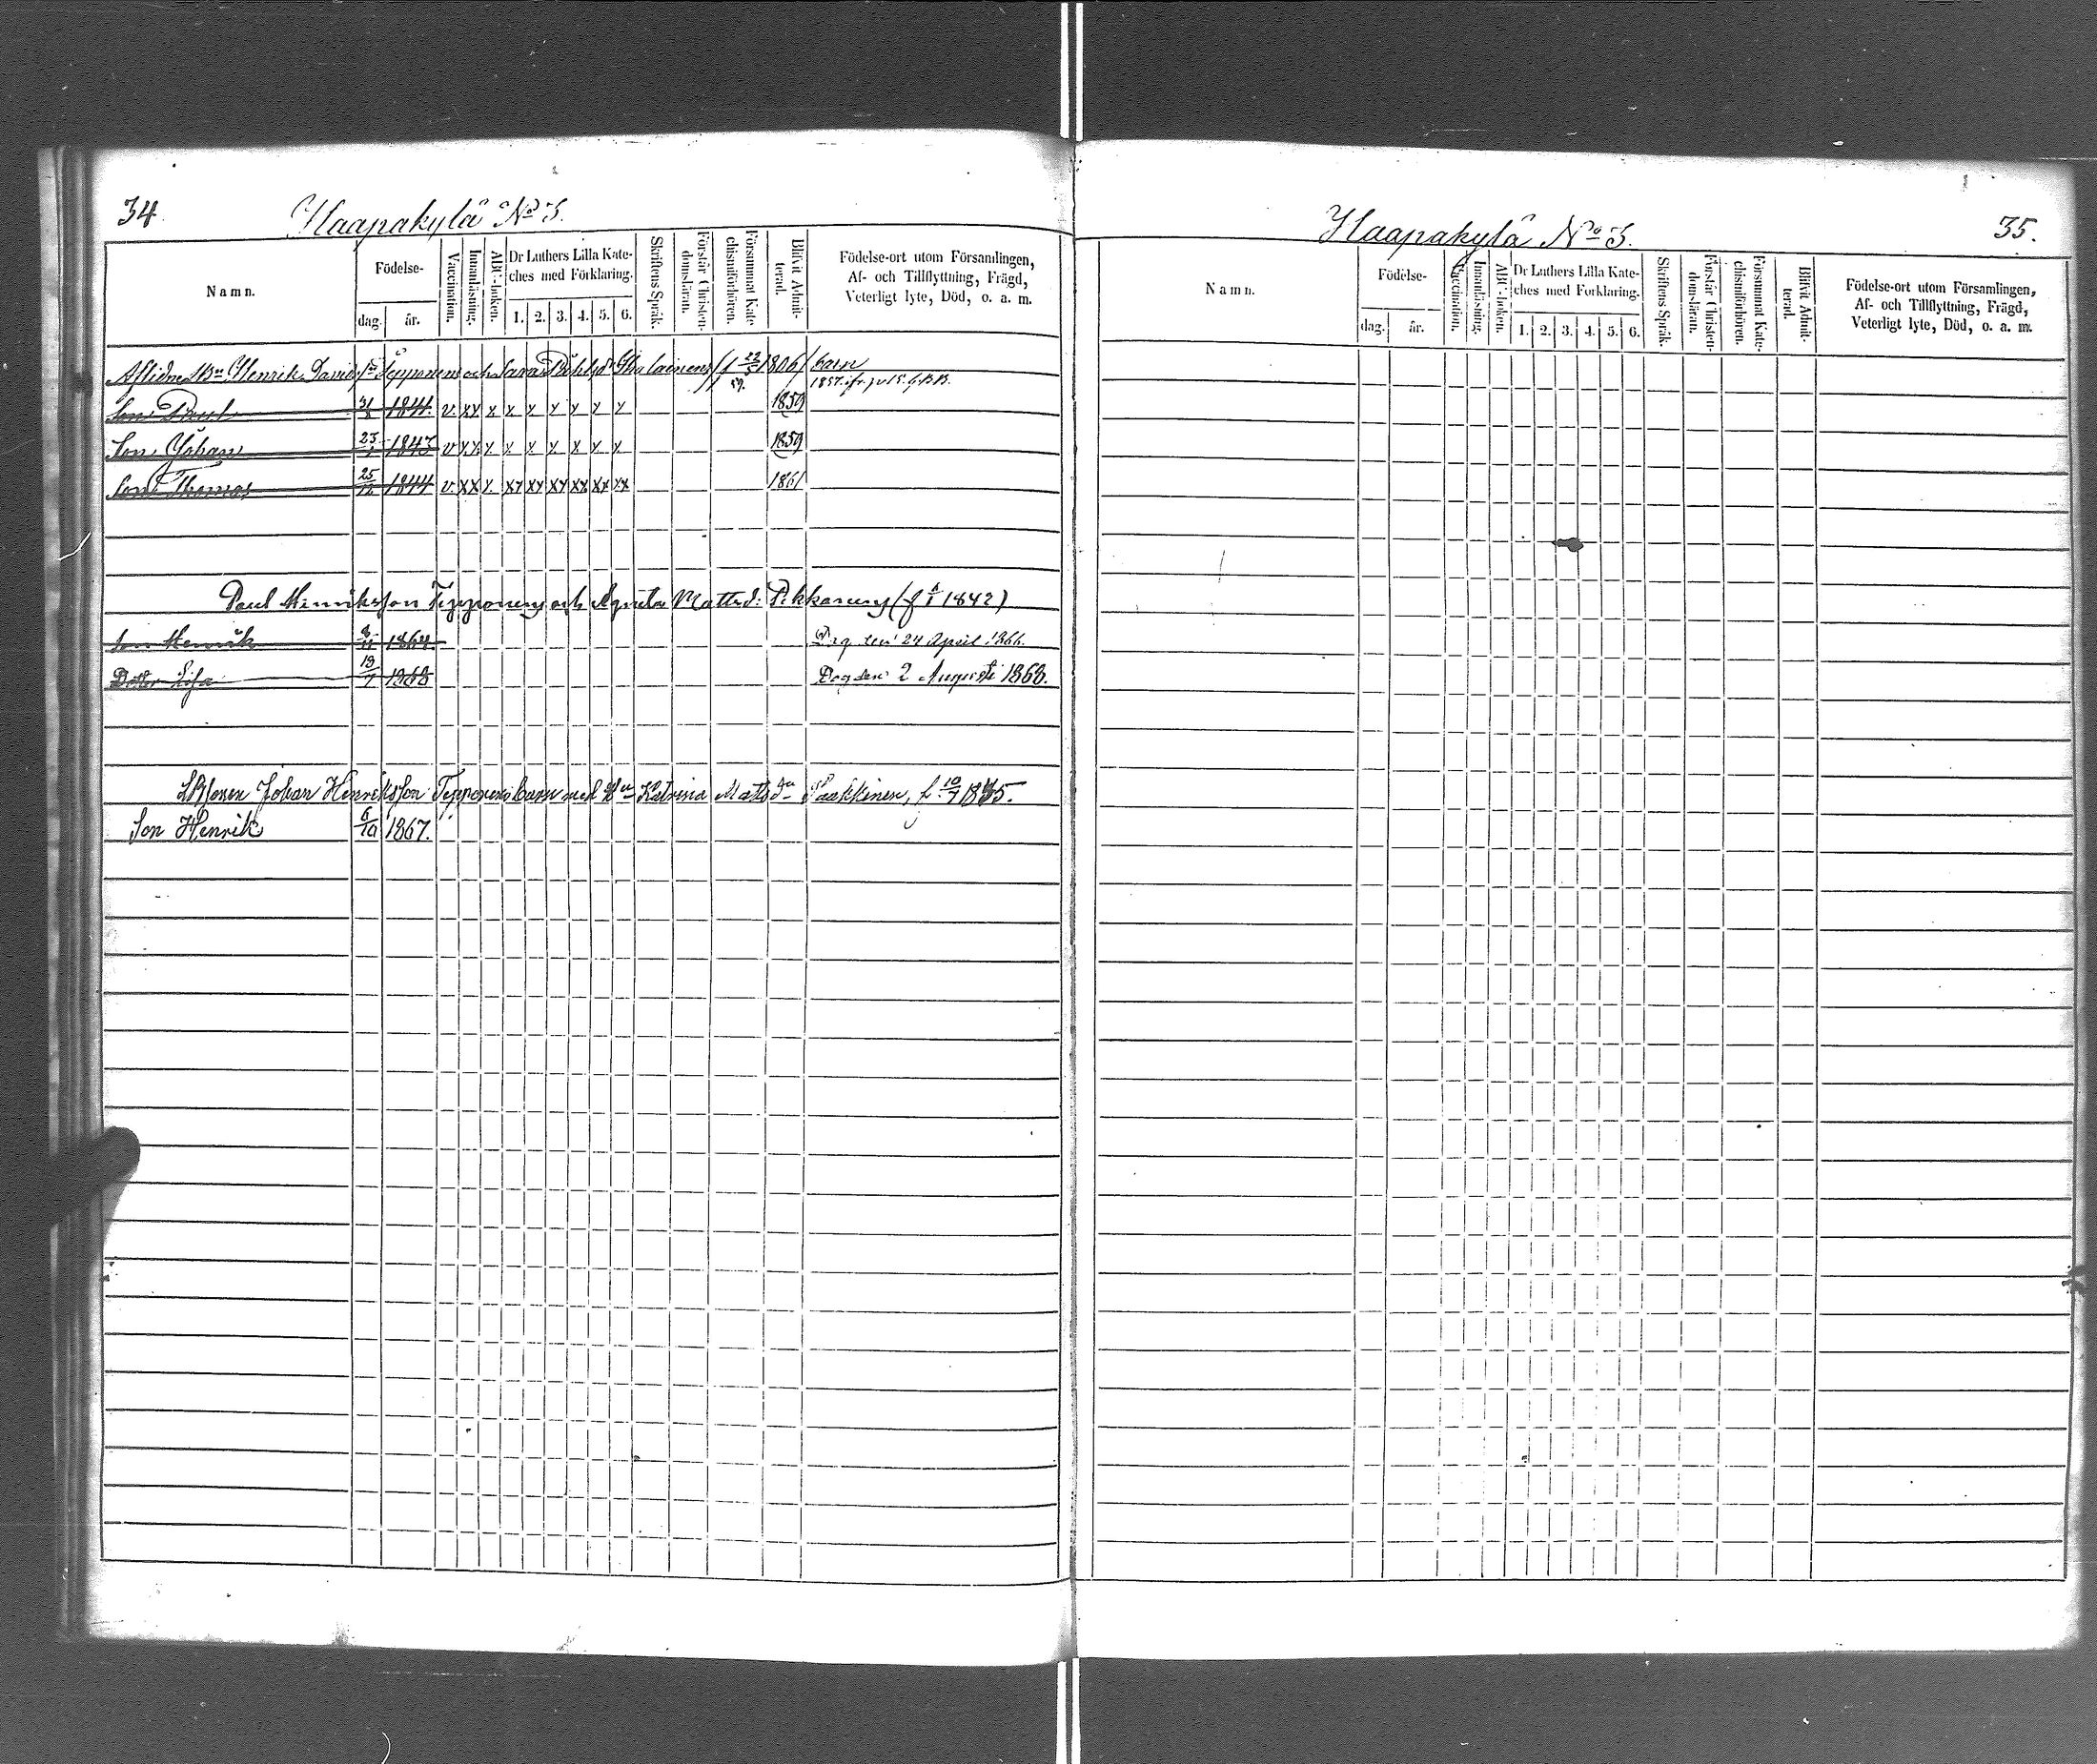 34.
Haapakylä No 5.
Namn.
Födelse-
dag.
år.
Vaccination.
Innanläsning.
ABC-boken.
Dr Luthers Lilla Kate-
ches med Förklaring.
1. 2. 3. 4. 5. 6.
Skriftens Språk.
Förstår Christen-
domsläran.
Försummat Kate-
chismiförhören.
Blifvit Admit-
terad.
Födelse-ort utom Församlingen,
Af- och Tillflyttning, Frägd,
Veterligt lyte, Död, o. a. m.
Aflidne Henrik Davids Tepponens och Sara barn
Son Paul 1841. v xx x x x x x x x 1859
Son Johan 1843 v xx x x x x x x x 1859
Son Thomas 25/12 1844 v xx x xx xx xx xx xx xx 1861
Paul Henriksson Tepponens och Agneta Mattsd: Pekkarinens 1842)
Son Henrik 1864 Dog den 24 April 1866.
Dotter Lisa 19/7 1868 Dog den 2 Augusti 1868.
Johan Henriksson Tepponens barn med Katrina Matts dr Paakkinen, f. 10/7 1835.
Son Henrik 6/10 1867.
Haapakylä No 5.
35.
Namn.
Födelse-
dag.
år.
Vaccination.
Innanläsning.
ABC-boken.
Dr Luthers Lilla Kate-
ches med Förklaring.
1. 2. 3. 4. 5. 6.
Skriftens Språk.
Förstår Christen-
domsläran.
Försummat Kate-
chismiförhören.
Blifvit Admit-
terad.
Födelse-ort utom Församlingen,
Af- och Tillflyttning, Frägd,
Veterligt lyte, Död, o. a. m.